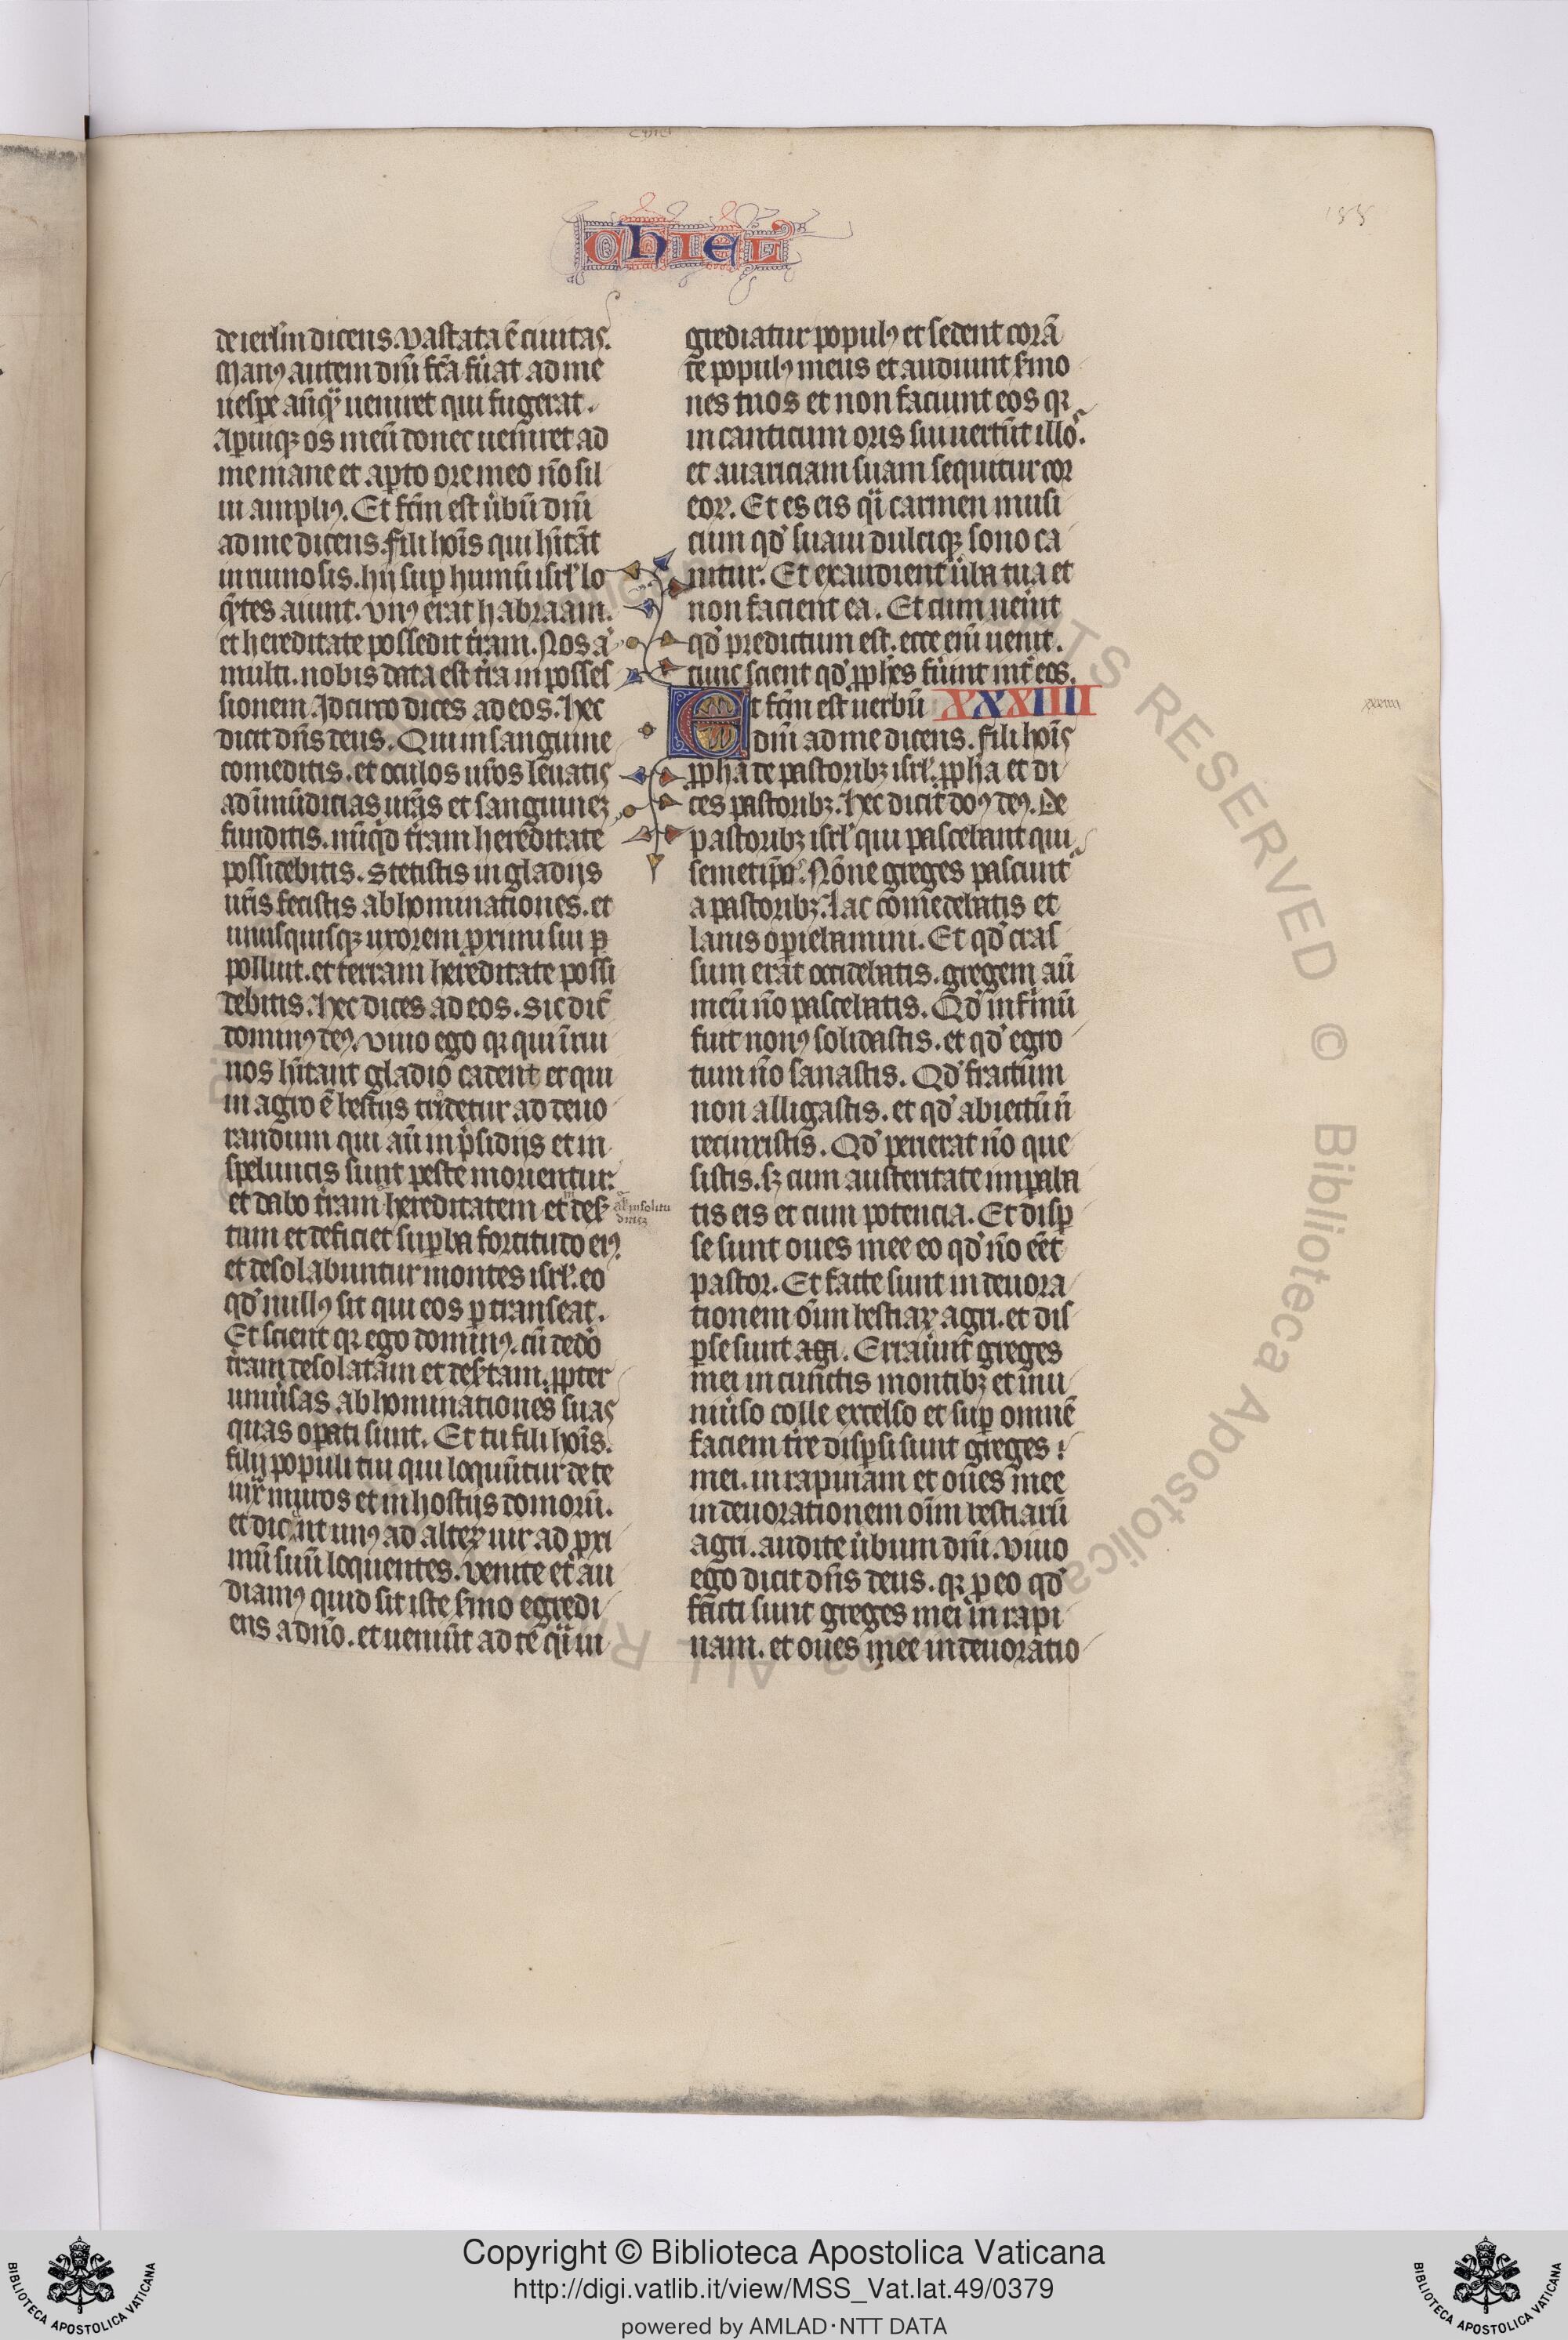 CHIEL
de ierl̅m dicens. vastata e̅ ciuitas.
Manꝰ autem dn̅i fc̅a fu̅at ad me
uesꝑe an̅qᷓ ueniret qui fugerat.
aꝑuitqꝫ os meu̅ donec ueniret ad
me mane et aꝑto ore meo no̅ sil
ui ampliꝰ. Et fc̅m est u̅bu̅ dn̅i
ad me dicens. fili hoı̅s qui hi̅ta̅t
in ruinosis. hij suꝑ humu̅ isrl̅ lo
q̅tes aiunt. vnꝰ erat habraam.
et hereditate possedit tr̅am. Nos a̅
multi. nobis data est tr̅a in posses
sionem. Idcirco dices ad eos. hec
dicit dn̅s deus. Qui in sanguine
comeditis. et oculos ur̅os leuatis
ad i̅mu̅dicias ur̅as et sanguineꝫ
funditis. nu̅qd tr̅am hereditate
possidebitis. Stetistis in gladijs
ur̅is fecistis abhominationes. et
unusquisqꝫ uxorem proximi sui ꝑ
polluit. et terram hereditate possi
debitis. hec dices ad eos. Sic dic̅
dominꝰ deꝰ. viuo ego qꝛ qui i̅rui
nos hi̅tant gladio cadent et qui
in agro e̅ bestijs tr̅detur ad deuo
randum qui au̅ in p̅sidijs et in
speluncis sunt peste morientur.
et dabo tr̅am hereditatem et des̅
al̅ in solitu
dineꝫ
tum et deficiet suꝑba fortitudo eiꝰ
et desolabuntur montes isrl̅. eo
qd̅ nullꝰ sit qui eos ꝑtranseat.
Et scient qꝛ ego dominꝰ. cu̅ dedo̅
tr̅am desolatam et des̅tam. ꝓpter
uniu̅sas abhominationes suas
quas oꝑati sunt. Et tu fili hoı̅s.
filij populi tui qui loqu̅ntur de te
iux̅ muros et in hostijs domoru̅.
et dicu̅t unꝰ ad alteꝝ uir ad ꝓxi
mu̅ suu̅ loquentes. venite et au
diamꝰ quid sit iste s̅mo egredi
ens a dn̅o. et ueniu̅t ad te qᷓi in
grediatur populꝰ et sedent cora̅
te populꝰ meus et audiunt s̅mo
nes tuos et non faciunt eos qꝛ
in canticum oris sui uertu̅t illos.
et auariciam suam sequitur cor
eoꝝ. Et es eis qᷓi carmen musi
cum qd̅ suaui dulciqꝫ sono ca
nitur. Et exaudient u̅ba tua et
non facient ea. Et cum ueı̅it
qd̅ predictum est. ecce eni̅ uenit.
tunc scient qd̅ ꝓphe̅s fu̅int int̅ eos.
Et fc̅m est uerbu̅ XXXIIII
dn̅i ad me dicens. fili hoı̅s
ꝓpha de pastoribꝫ isrl̅. ꝓpha et di
ces pastoribꝫ. hec dicit doꝰ deꝰ. Ue
pastoribꝫ isrl̅ qui pascebant qui
semetip̅os. No̅ne greges pascunt̅
a pastoribꝫ. lac co̅medebatis et
lanis oꝑiebamini. Et qd̅ cras
sum erat occidebatis. gregem au̅
meu̅ no̅ pascebatis. Qd̅ infirmu̅
fuit nonꝰ solidastis. et qd̅ egro
tum no̅ sanastis. Qd̅ fractum
non alligastis. et qd̅ abiectu̅ n̅
reduxistis. Qd̅ perierat no̅ que
sistis. sꝫ cum austeritate impaba
tis eis et cum potencia. Et disꝑ
se sunt oues mee eo qd̅ no̅ e̅et
pastor. Et facte sunt in deuora
tionem oı̅um bestiaꝝ agri. et dis
ꝑse sunt agi. Errau̅unt greges
mei in cunctis montibꝫ et i̅nu
niu̅so colle excelso et suꝑ omne̅
faciem tr̅e disꝑsi sunt greges
mei. in rapinam et oues mee
in deuorationem oı̅m bestiaru̅
agri. audite u̅bum dn̅i. viuo
ego dicit dn̅s deus. qꝛ ꝓ eo qd̅
facti sunt greges mei in rapi
nam. et oues mee in deuoratio
xxxiiii
Copyright © Biblioteca Apostolica Vaticana
http://digi.vatlib.it/view/MSS_Vat.lat.49/0379
powered by AMLAD·NTT DATA
BIBLIOTECA APOSTOLICA VATICANA
BIBLIOTECA APOSTOLICA VATICANA